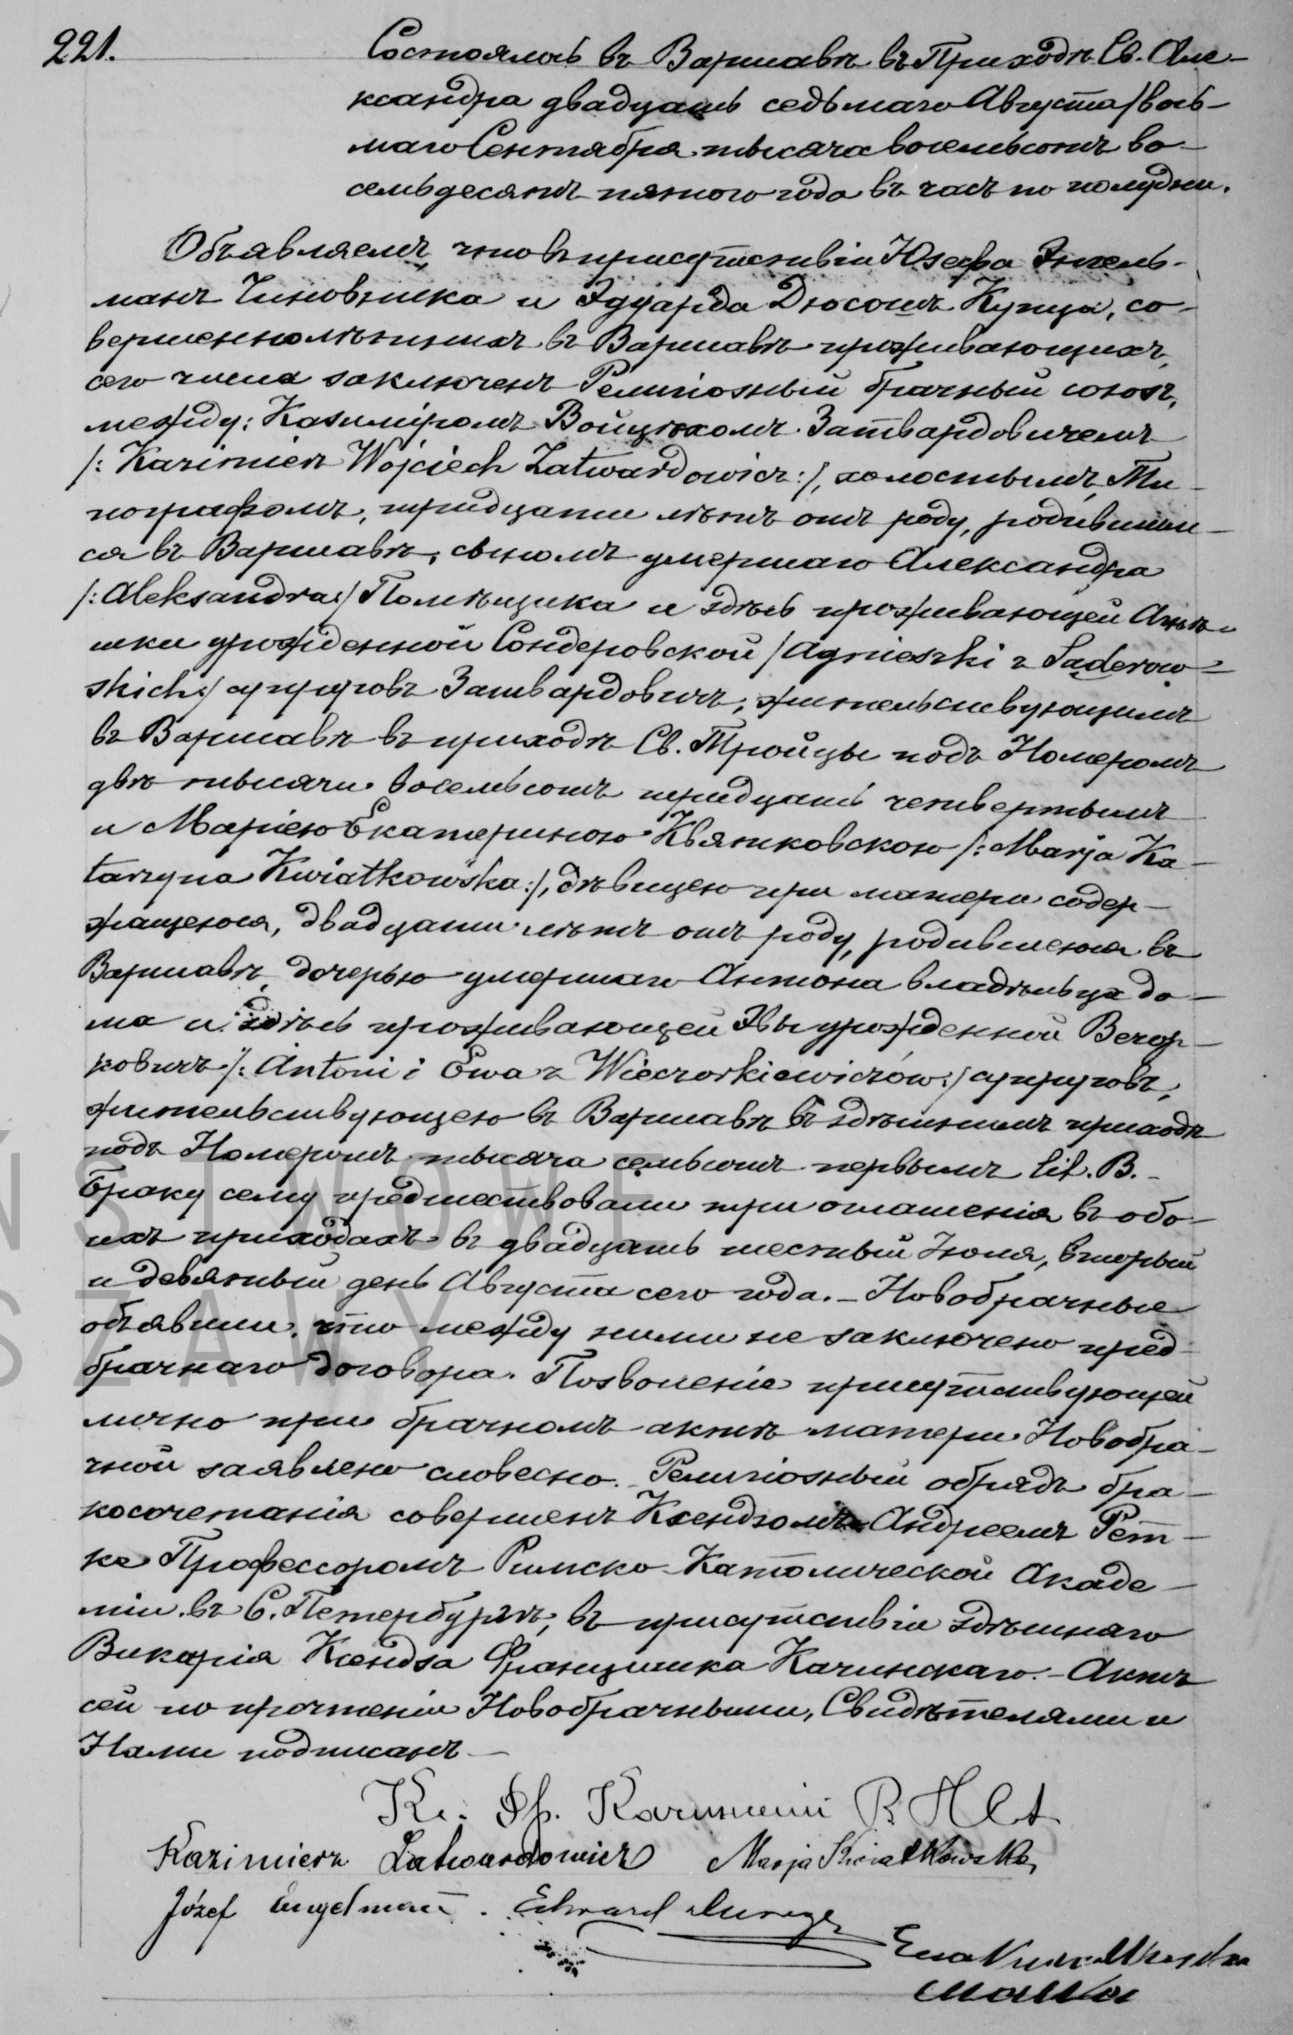 221.
Состоялось въ Варшавѣ въ Приходѣ Св. Але-
ксандра двадцать седьмаго Августа / вось-
маго Сентября тысяча восемьсотъ во-
семьдесятъ пятого года въ часъ по полудни.
Объявляемъ, что въ присутствіи Юзефа Энгель-
манъ Чиновника и Эдуарда Купца, со-
вершеннолѣтнихъ въ Варшавѣ проживающихъ,
сего числа заключенъ Религіозный брачный союзъ,
между: Казиміромъ Войцѣхомъ Затвардовичемъ
/: Kazimierz Wojciech Zatwardowicz :/, холостымъ, Ти-
пографомъ, тридцати лѣтъ отъ роду, родившим-
ся въ Варшавѣ, сыномъ умершаго Александра
/: Aleksandra :/ Помѣщика и здѣсь проживающей Агнѣ-
шки урожденной Сондеровской / Agnieszki z Sąderow-
skich :/ супруговъ Затвардовичъ, жительствующимъ
въ Варшавѣ въ приходѣ Св. Тройцы подъ Номеромъ
двѣ тысячи восемьсотъ тридцать четвертымъ
и Маріею Екатериною Квятковскою /: Marja Ka-
tarzyna Kwiatkowska :/, дѣвицею при матери содер-
жащеюся, двадцати лѣтъ отъ роду, родившеюся въ
Варшавѣ, дочерью умершаго Антона владѣльца до-
ма и здѣсь проживающей Эвы урожденной Вечор-
ковичъ /: Antoni i Ewa z Wieczorkiewiczów :/ супруговъ,
жительствующею въ Варшавѣ въ здѣшнемъ приходѣ
подъ Номеромъ тысяча семьсотъ первымъ lit. B. -
Браку сему предшествовали три оглашенія въ обо-
ихъ приходахъ въ двадцать шестый Іюля, вторый
и девятый день Августа сего года. - Новобрачные
объявили, что между ними не заключено пред-
брачнаго договора. Позволеніе присутствующей
лично при брачномъ актѣ матери Новобра-
чной заявлено словесно. Религіозный обрядъ бра-
косочетанія совершенъ Ксендзомъ Андреемъ Рет-
ке Профессоромъ Римско-Католической Акаде-
міи въ С. Петербургѣ, въ присутствіи здѣшняго
Викарія Ксендза Францишка Качинскаго. - Актъ
сей по прочтеніи Новобрачными, Свидѣтелями и
Нами подписанъ. -
Кс. Фр.
Kazimierz Zatwardowicz Marja Kwiatkowska
Józef Engelman. Edward
Ewa Kwiatkowska
matka
NSTWOWE
SZAWY